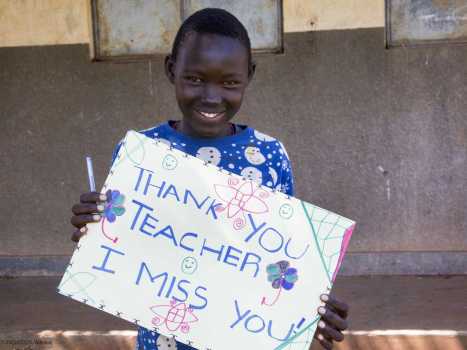 THANK YOU
TEACHER
I MISS YOU!